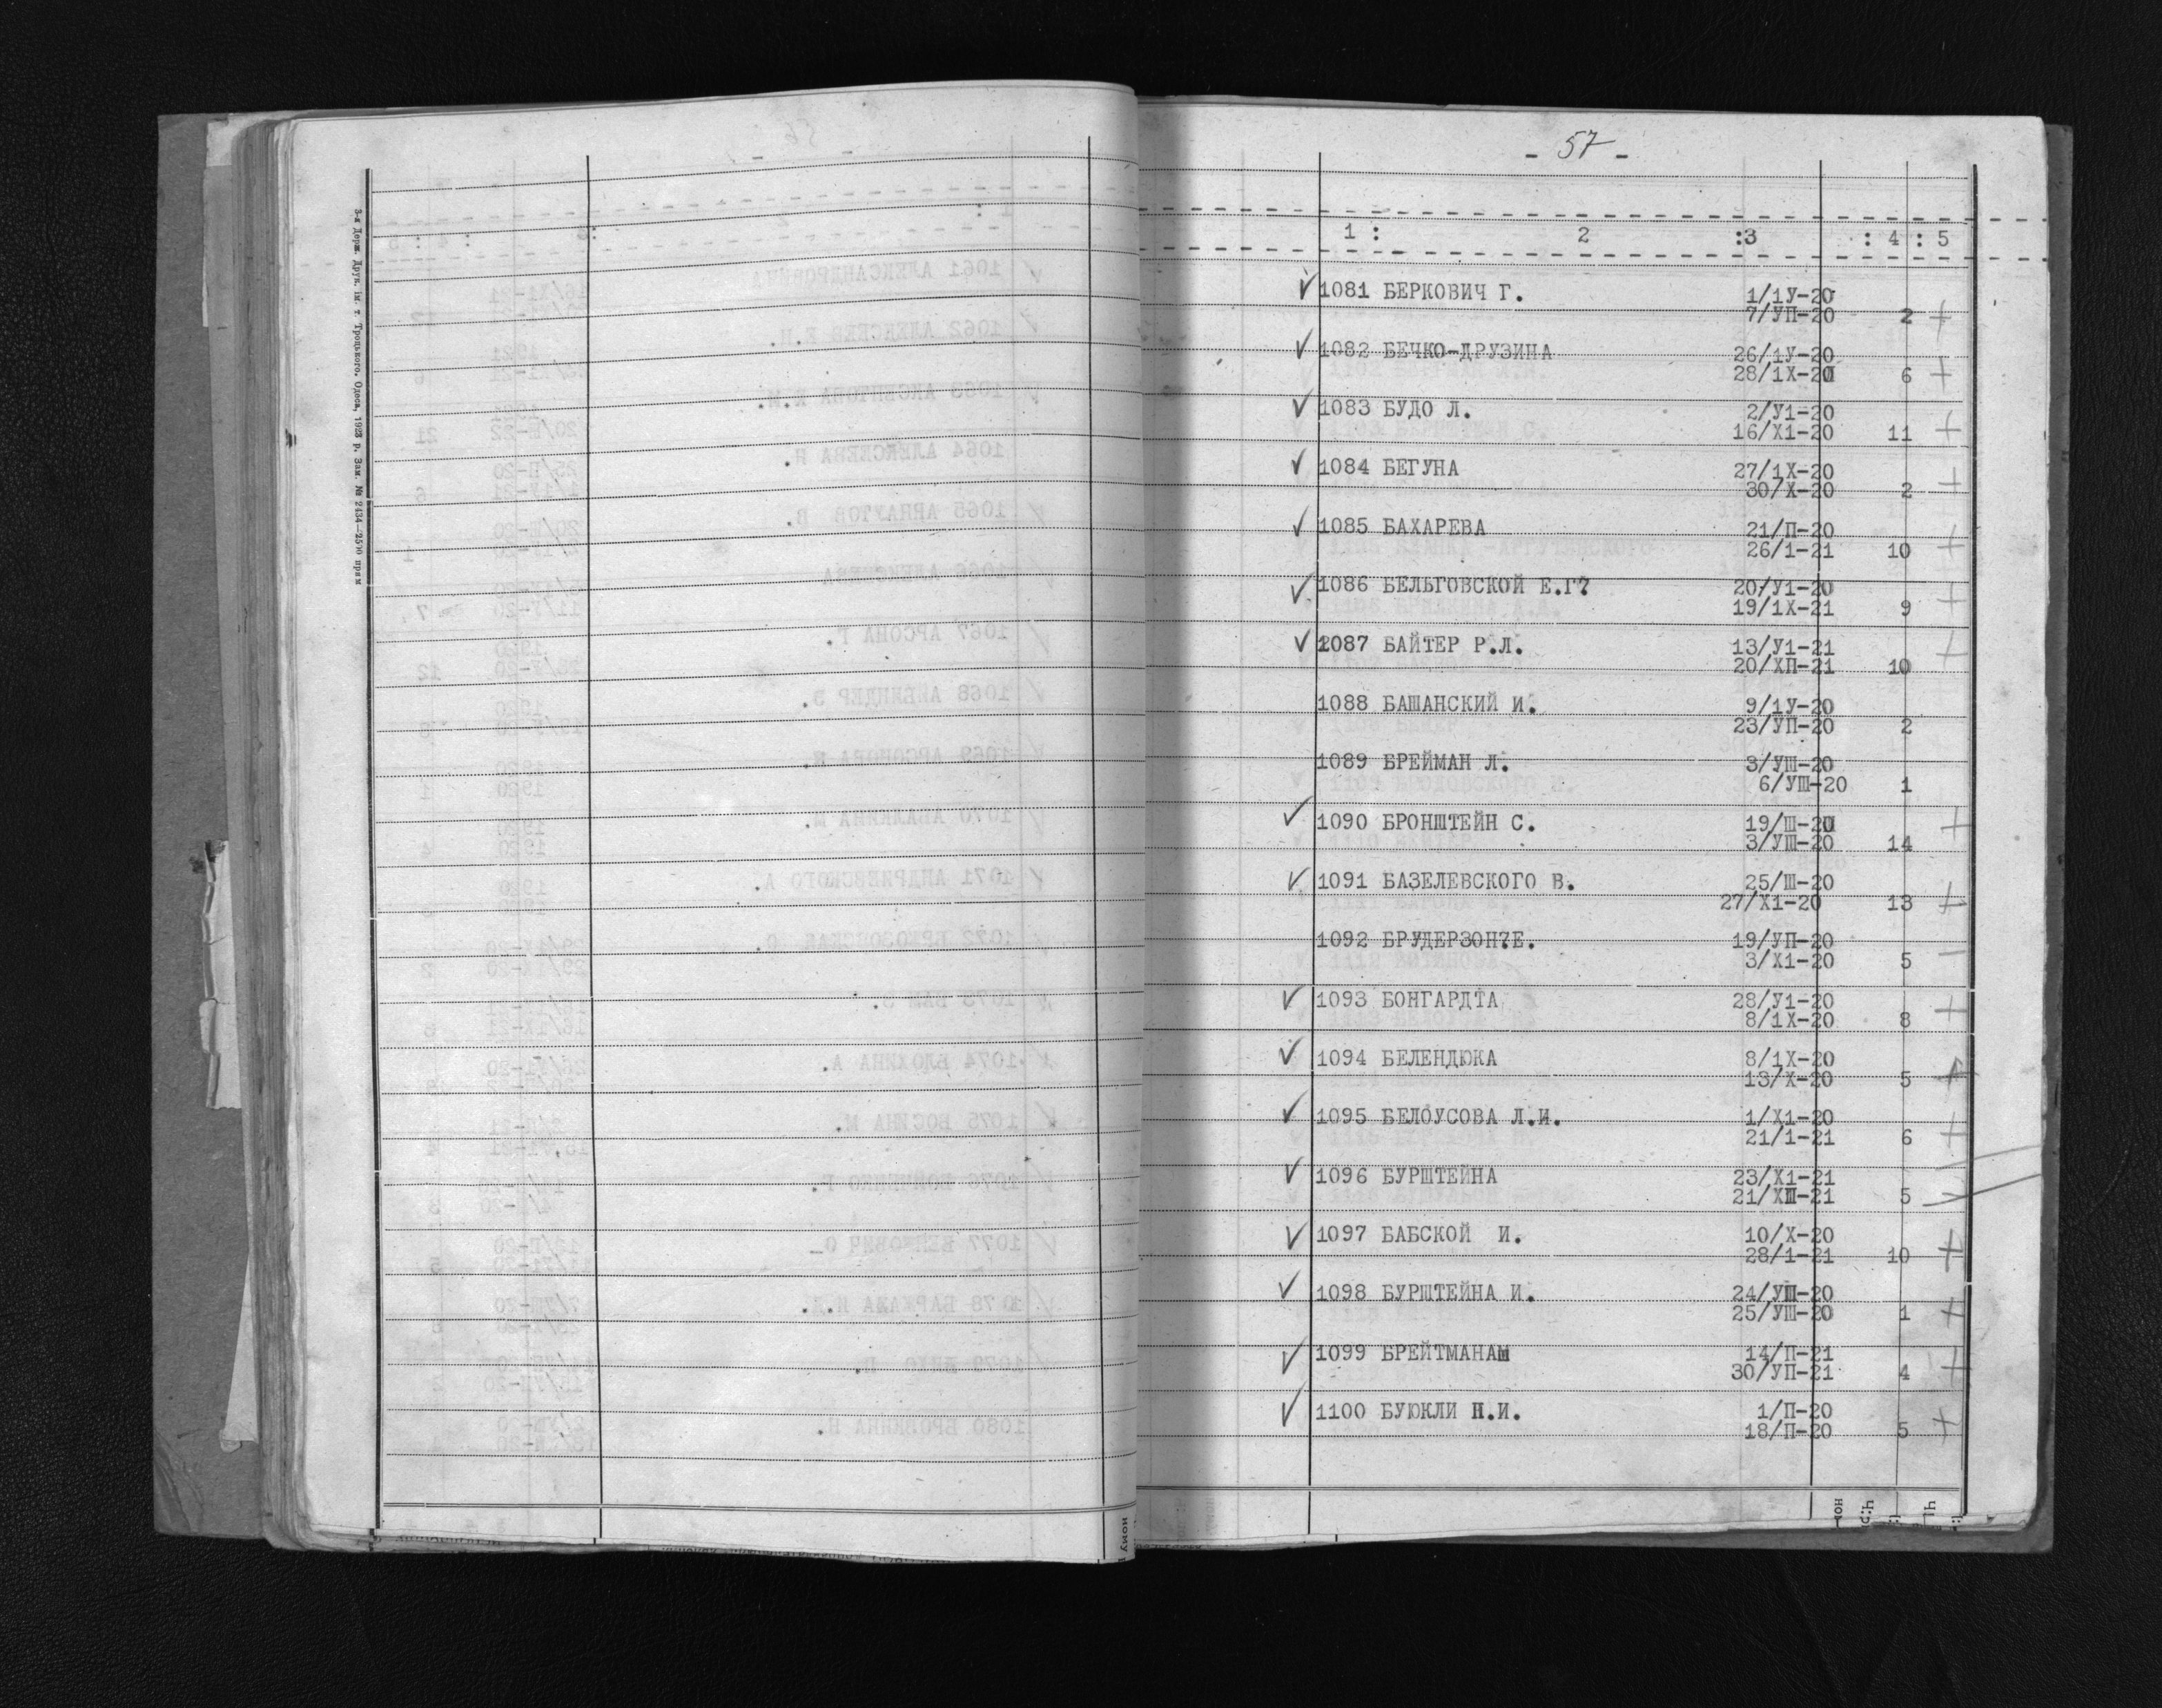 3-я Держ. Друк. ім. т. Троцького. Одеса, 1923 р. Зам. № 2434—2500 прим
- 57 -
1 : 2 :3 : 4 : 5
✓ 1081 БЕРКОВИЧ Г. 1/1У-20
7/УП-20 2 +
✓ 1082 БЕЧКО-ДРУЗИНА 26/1У-20
28/1Х-20 6 +
✓ 1083 БУДО Л. 2/У1-20
16/Х1-20 11 +
✓ 1084 БЕГУНА 27/1Х-20
30/Х-20 2 +
✓ 1085 БАХАРЕВА 21/П-20
26/1-21 10 +
✓ 1086 БЕЛЬГОВСКОЙ Е.Г? 20/У1-20
19/1Х-21 9 +
✓ 1087 БАЙТЕР Р.Л. 13/У1-21
20/ХП-21 10 +
1088 БАШАНСКИЙ И. 9/1У-20
23/УП-20 2
1089 БРЕЙМАН Л. 3/УШ-20
6/УШ-20 1
✓ 1090 БРОНШТЕЙН С. 19/Ш-20
3/УШ-20 14 +
✓ 1091 БАЗЕЛЕВСКОГО В. 25/Ш-20
27/Х1-20 13 +
1092 БРУДЕРЗОН?Е. 19/УП-20
3/Х1-20 5 -
✓ 1093 БОНГАРДТА 28/У1-20
8/1Х-20 8 +
✓ 1094 БЕЛЕНДЮКА 8/1Х-20
13/Х-20 5 +
✓ 1095 БЕЛОУСОВА Л.И. 1/Х1-20
21/1-21 6 +
✓ 1096 БУРШТЕЙНА 23/Х1-21
21/ХП-21 5
✓ 1097 БАБСКОЙ И. 10/Х-20
28/1-21 10 +
✓ 1098 БУРШТЕЙНА И. 24/УШ-20
25/УШ-20 1 +
✓ 1099 БРЕЙТМАНА 14/П-21
30/УП-21 4 +
✓ 1100 БУЮКЛИ Н.И. 1/П-20
18/П-20 5 +